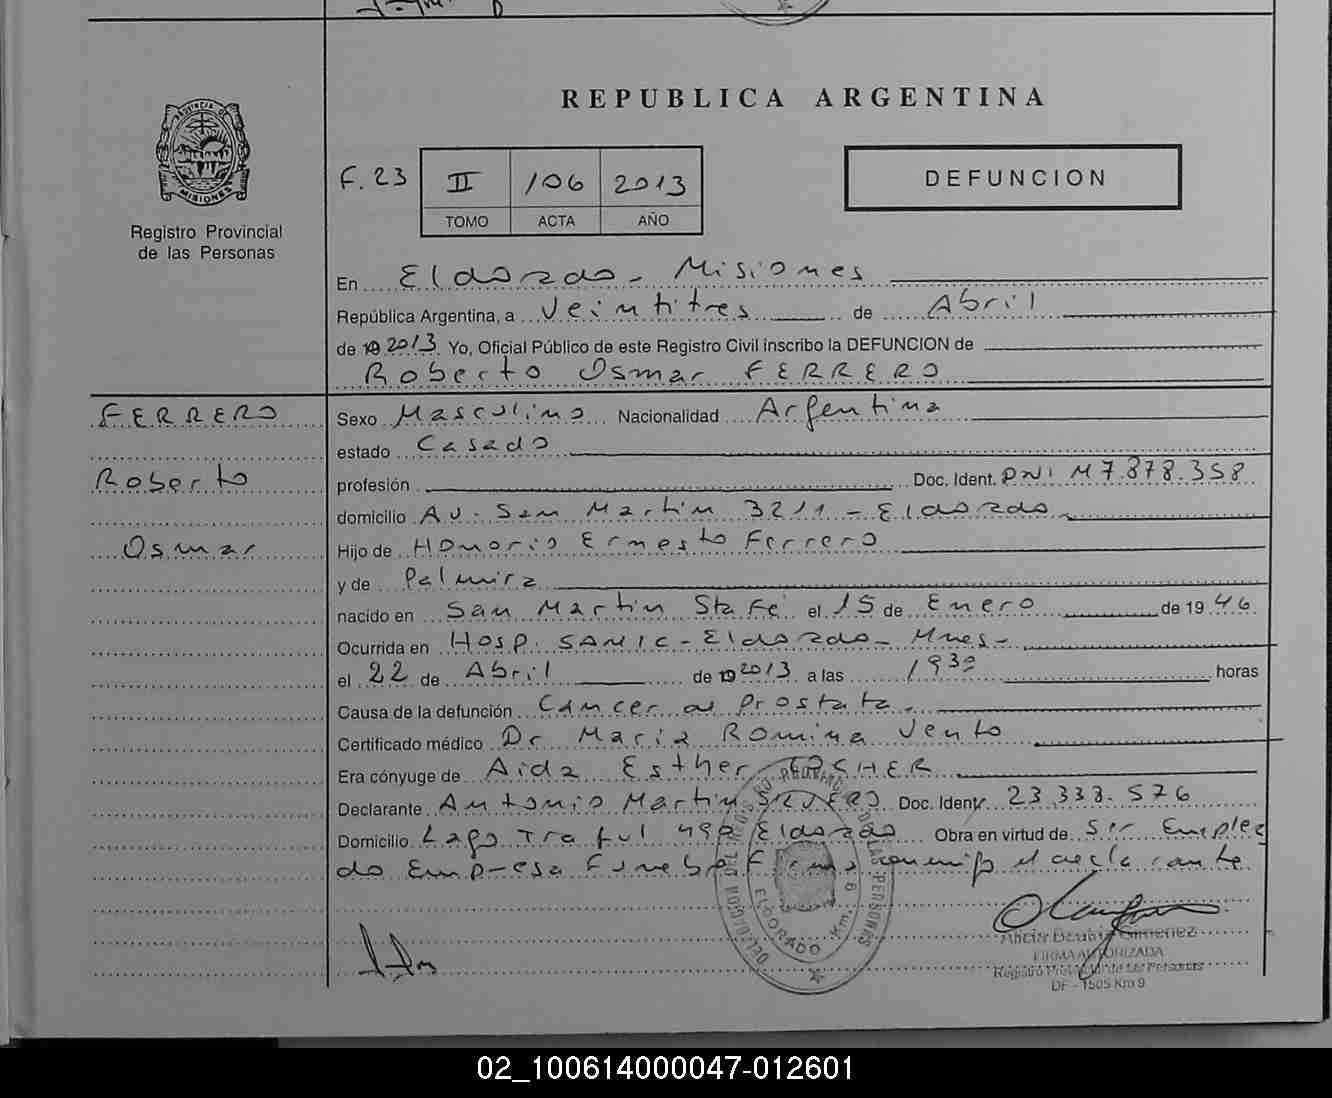 REPUBLICA ARGENTINA
PROVINCIA DE
MISIONES
Registro Provincial
de las Personas
F. 23 II 106 2013
TOMO ACTA AÑO
DEFUNCION
En Eldorado - Misiones
República Argentina, a Veintitres de Abril
de 19 2013 Yo, Oficial Público de este Registro Civil inscribo la DEFUNCION de
Roberto Osmar FERRERO
FERRERO
Roberto
Osmar
Sexo Masculino Nacionalidad Argentina
estado Casado
profesión Doc. Ident. DNI M7.878.358
domicilio Av. San Martin 3211 - Eldorado
Hijo de Honorio Ernesto Ferrero
y de Palmira
nacido en San Martin Sta Fé el 15 de Enero de 19 46
Ocurrida en Hosp. SAMIC - Eldorado - Mnes -
el 22 de Abril de 19 2013 a las 1930 horas
Causa de la defunción Cancer de Prostata.
Certificado médico Dr Maria Romina Vento
Era cónyuge de Aida Esther
Declarante Antonio Martin Doc. Ident. 23.338.576
Domicilio Lago Traful 490 Eldorado Obra en virtud de Ser Emplea
do Empresa Funebre Firma conmigo el declarante
DE LAS PERSONAS
ELDORADO Km. 8
FIRMA AUTORIZADA
Registro Provincial de las Personas
DF - 1505 Km 9
02_100614000047-012601